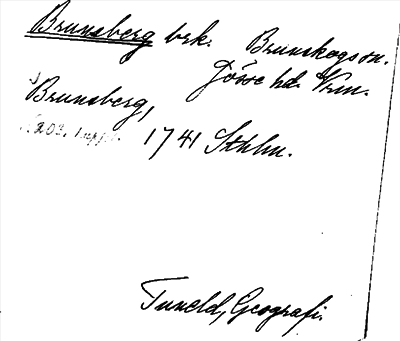 Brunsberg brk. Brunskogs sn.
Jösse hd. Vrm.
Brunsberg,
s. 203. 1 uppl. 1741 Sthlm.
Tuneld, Geografi.